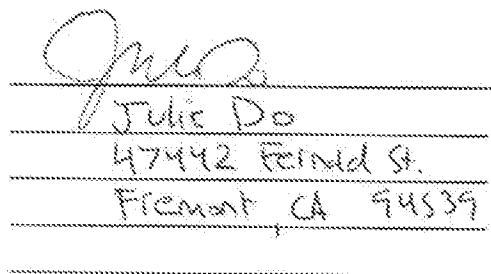 Julie Do
47442 Fernald St.
Fremont CA 94539